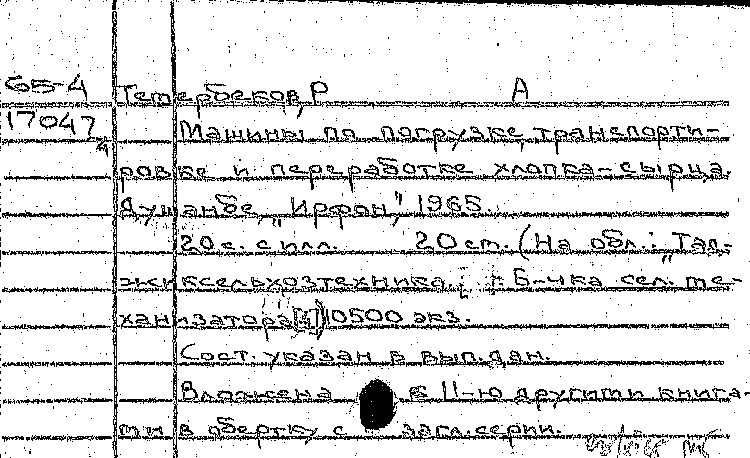 65-4 Тетербеков, Р А
17047
Машины по погрузке, транспорти-
ровке и переработке хлопка-сырца.
Душанбе, „Ирфон", 1965.
20 с. с илл. 20 см. (На обл.: „Тад-
жиксельхозтехника. Б-чка сел. ме-
ханизатора [4]) 10500 экз.
Сост. указан в вып. дан.
Вложена с 11-ю другими книга-
ми в обертку с загл. серии.